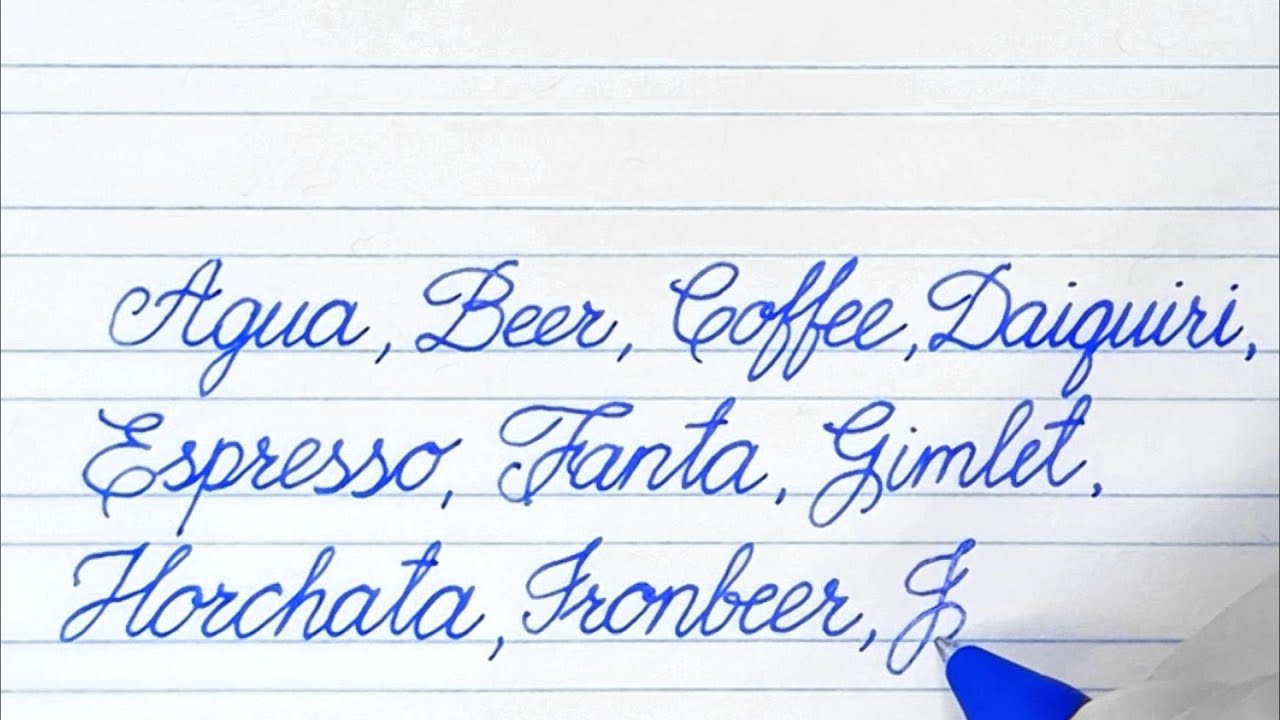 Agua, Beer, Coffee, Daiquiri,
Espresso, Fanta, Gimlet,
Horchata, Ironbeer, J